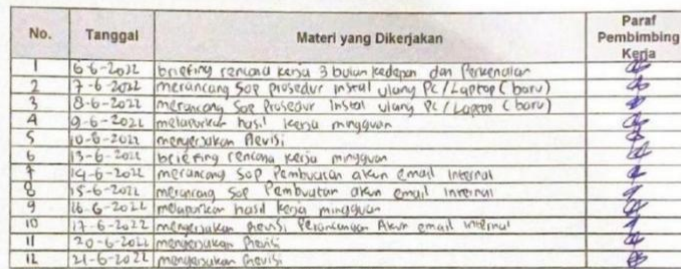 No. Tanggal Materi yang Dikerjakan Paraf Pembimbing Kerja
1 6-6-2022 briefing rencana kerja 3 bulan kedepan dan Perkenalan
2 7-6-2022 merancang SOP prosedur instal ulang PC/Laptop (baru)
3 8-6-2022 merancang SOP Prosedur Instal ulang PC/Laptop (baru)
4 9-6-2022 melaporkan hasil kerja mingguan
5 10-6-2022 mengerjakan Revisi
6 13-6-2022 briefing rencana kerja mingguan
7 14-6-2022 merancang SOP Pembuatan akun email internal
8 15-6-2022 merancang SOP Pembuatan akun email internal
9 16-6-2022 melaporkan hasil kerja mingguan
10 17-6-2022 mengerjakan revisi Perancangan Akun email internal
11 20-6-2022 mengerjakan Revisi
12 21-6-2022 mengerjakan Revisi